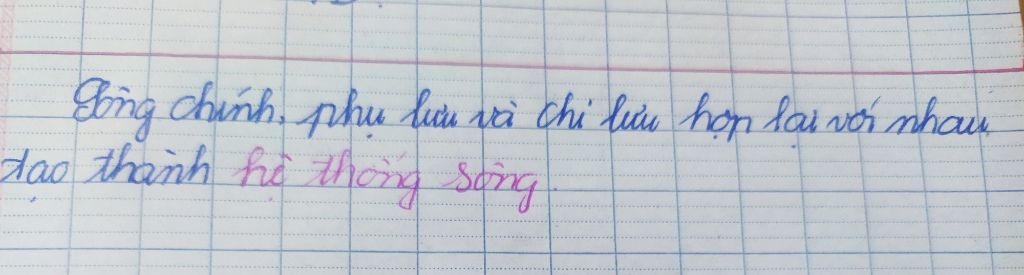 Sông chính, phụ lưu và chi lưu hợp lại với nhau
tạo thành hệ thống sông.